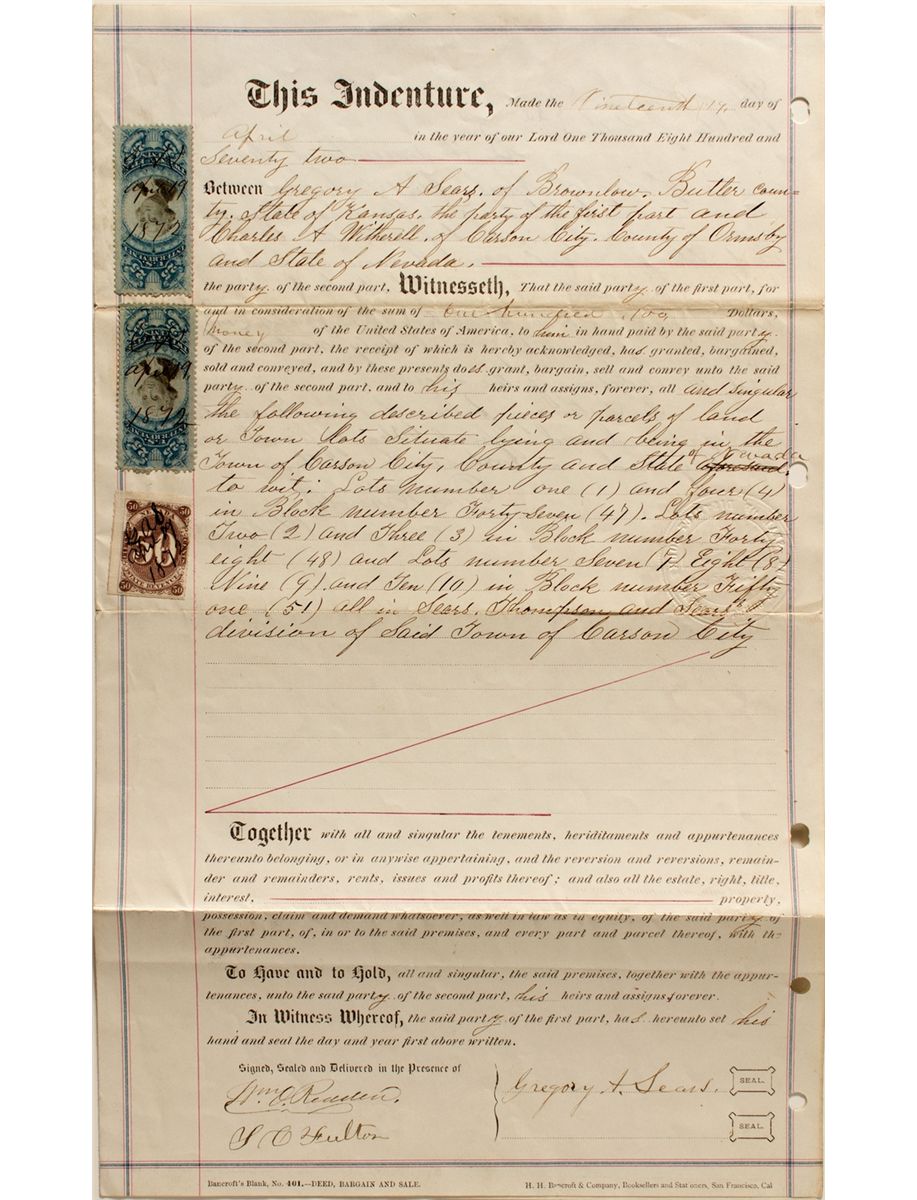 This Indenture, Made the Nineteenth 19. day of
April in the year of our Lord One Thousand Eight Hundred and
Seventy two
Between Gregory A Sears. of Brownlow. Butler coun-
ty. State of Kansas. the party of the first part and
Charles A Witherell. of Carson City. County of Ormsby
and State of Nevada.
the party of the second part, Witnesseth, That the said party of the first part, for
and in consideration of the sum of One hundred Dollars,
money of the United States of America, to him in hand paid by the said party
of the second part, the receipt of which is hereby acknowledged, has granted, bargained,
sold and conveyed, and by these presents does grant, bargain, sell and convey unto the said
party of the second part, and to his heirs and assigns, forever, all and singular
the following described pieces or parcels of land
or Town Lots Situate lying and being in the
Town of Carson City, County and State aforesaid of Nevada
to wit: Lots number one (1) and four (4)
in Block number Forty Seven (47). Lots number
Two (2) and Three (3) in Block number Forty
eight (48) and Lots number Seven (7) Eight (8)
Nine (9) and Ten (10) in Block number Fifty
one (51) all in Sears. Thompson and Sears'
division of Said Town of Carson City
Together with all and singular the tenements, heriditaments and appurtenances
thereunto belonging, or in anywise appertaining, and the reversion and reversions, remain-
der and remainders, rents, issues and profits thereof; and also all the estate, right, title,
interest, property,
possession, claim and demand whatsoever, as well in law as in equity, of the said party of
the first part, of, in or to the said premises, and every part and parcel thereof, with the
appurtenances.
To Have and to Hold, all and singular, the said premises, together with the appur-
tenances, unto the said party of the second part, his heirs and assigns forever.
In Witness Whereof, the said party of the first part, has hereunto set his
hand and seal the day and year first above written.
Signed, Sealed and Delivered in the Presence of
Gregory A. Sears. SEAL.
T C Fulton SEAL.
Bancroft's Blank, No. 401.—DEED, BARGAIN AND SALE. H. H. Bancroft & Company, Booksellers and Stationers, San Francisco, Cal
April 19
1872
April 19
1872
50 50
50 50